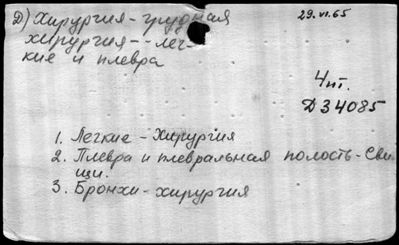 Д) Хирургия - грудная
29.VI.65
хирургия - - лег-
кие и плевра
4 пт.
Д34085
1. Легкие - хирургия
2. Плевра и плевральная полость - Сви-
щи.
3. Бронхи - хирургия